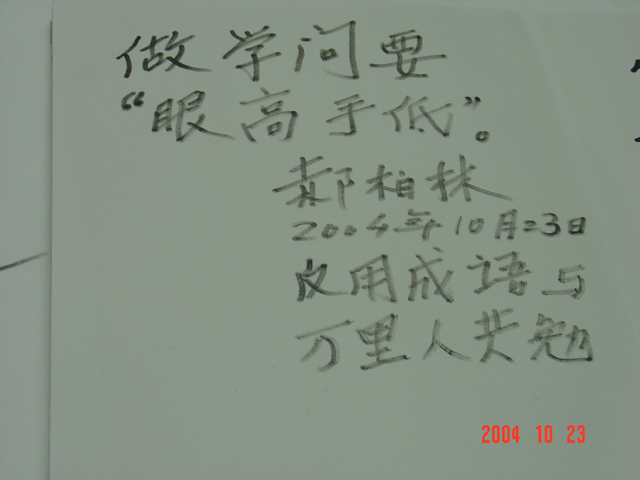 做学问要
“眼高手低”。
郝柏林
2004年10月23日
反用成语与
万里人共勉
2004 10 23